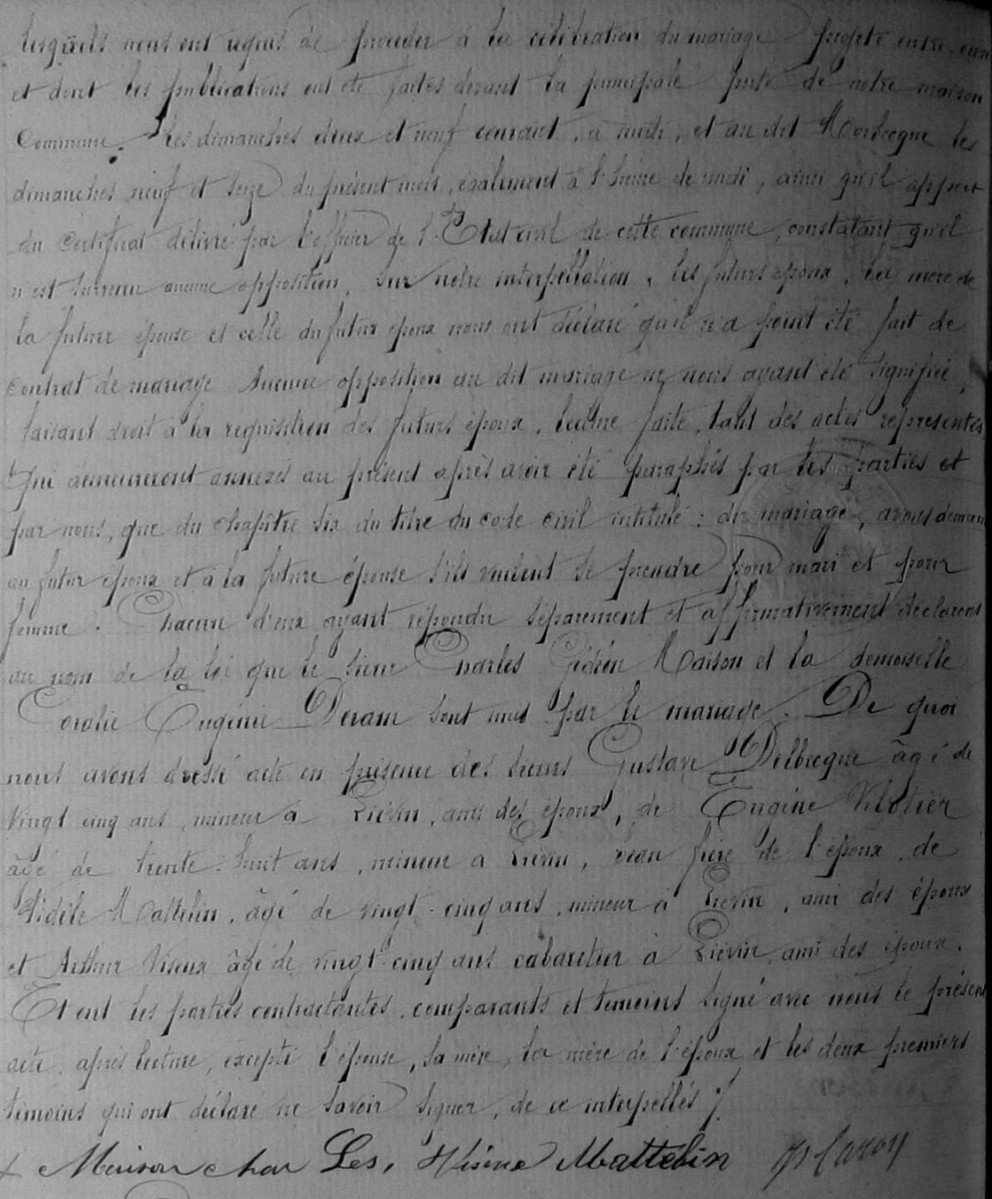 lesquels nous ont requis de procéder à la célébration du mariage projeté entre eux
et dont les publications ont été faites devant la principale porte de notre maison
Commune. les dimanches deux et neuf courant, à midi, et au dit Morbecque les
dimanches neuf et seize du présent mois, également à l'heure de midi, ainsi qu'il appert
du Certificat délivré par l'officier de l'Etat civil de cette commune, constatant qu'il
n'est survenu aucune opposition. Sur notre interpellation, les futurs époux, la mère de
la future épouse et celle du futur époux nous ont déclaré qu'il n'a point été fait de
contrat de mariage. Aucune opposition au dit mariage ne nous ayant été signifiée,
faisant droit à la réquisition des futurs époux, lecture faite, tant des actes représentés,
Qui demeureront annexés au présent après avoir été paraphés par les parties et
par nous, que du chapître six du titre du code civil intitulé : du mariage, avons demandé
au futur époux et à la future épouse s'ils veulent se prendre pour mari et pour
femme. Chacun d'eux ayant répondu séparement et affirmativement déclarons
au nom de la loi que le sieur Charles Gédéon Maison et la demoiselle
Coralie Eugénie Deram sont unis par le mariage. De quoi
nous avons dressé acte en présence des sieurs Gustave Delbecque âgé de
vingt cinq ans, mineur à Liévin, ami des époux, de Eugène
âgé de trente-huit ans, mineur à Liévin, beau frère de l'époux, de
Fidèle Mattelin, âgé de vingt-cinq ans, mineur à Liévin, ami des époux
et Arthur Viseux âgé de vingt-cinq ans cabaretier à Liévin, ami des époux.
Et ont les parties contractantes, comparants et témoins signé avec nous le présent
acte, après lecture, excepté l'épouse, sa mère, la mère de l'époux et les deux premiers
témoins qui ont déclaré ne savoir signer, de ce interpellés.
Maison char Les, Mattelin